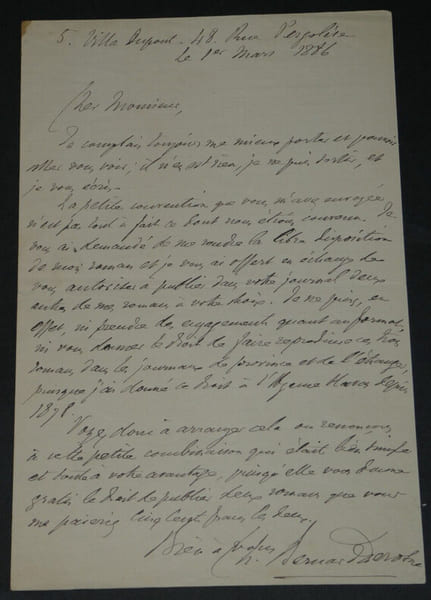 5. Villa Dupont - 48 Rue Pergolèse
Le 1er Mars 1886
Cher Monsieur,
Je comptais toujours me mieux porter et pouvoir
aller vous voir; il n'en est rien, je ne puis sortir, et
je vous écris.
La petite convention que vous m'avez envoyée
n'est pas tout à fait ce dont nous étions convenu. Je
vous ai demandé de me rendre la libre disposition
de mon roman et je vous ai offert en échange de
vous autoriser à publier dans votre journal deux
autres de mes romans à votre choix. Je ne puis, en
effet, ni prendre des engagements quant au format,
ni vous donner le droit de faire reproduire ces
romans dans les journaux de province et de l'étranger,
puisque j'ai donné ce droit à l'Agence Havas depuis
1878.
Voyez donc à arranger cela ou renonçons
à cette petite combinaison qui était bien simple
et toute à votre avantage, puisqu'elle vous donne
gratis le droit de publier deux romans que vous
me paieriez cinq cent francs les deux.
Bien à vous
Bernard Derosne